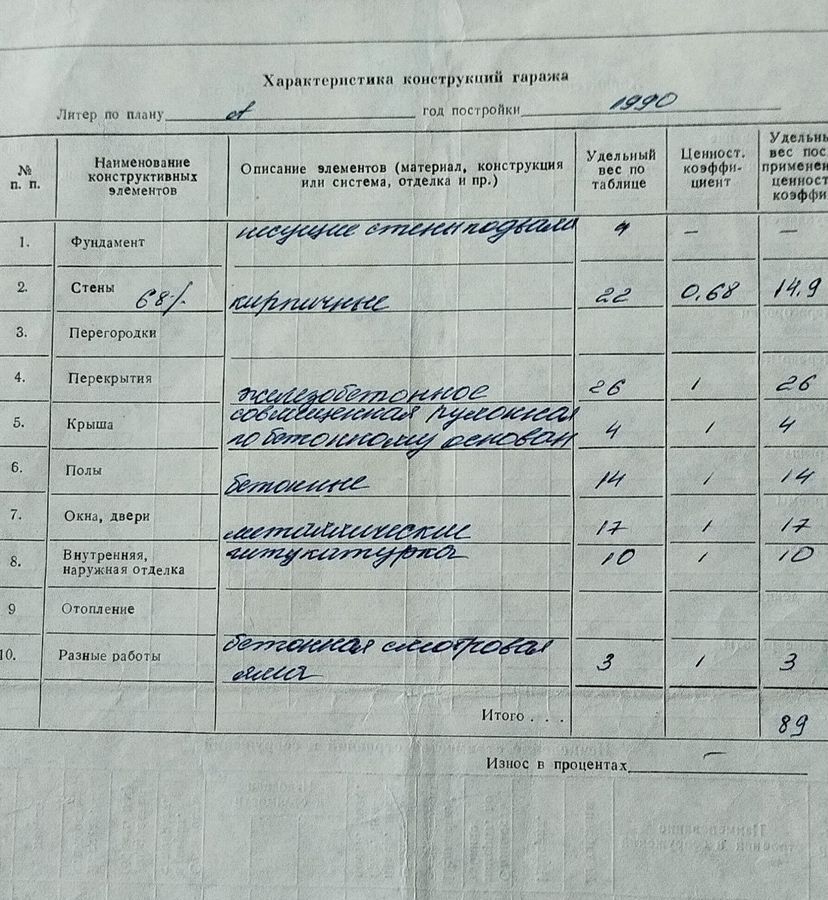 Характеристика конструкций гаража
Литер по плану А год постройки 1990
№ п. п.
Наименование
конструктивных
элементов
Описание элементов (материал, конструкция
или система, отделка и пр.)
Удельный
вес по
таблице
Ценност.
коэффи-
циент
Удельны
вес посл
применен
ценност
коэффи
1. Фундамент несущие стены подвала 4 — —
2. Стены 68% кирпичные 22 0,68 14.9
3. Перегородки
4. Перекрытия железобетонное 26 1 26
5. Крыша совмещенная рулонная
по бетонному основан 4 1 4
6. Полы бетонные 14 1 14
7. Окна, двери металлические 17 1 17
8. Внутренняя, штукатурка 10 1 10
наружная отделка
9 Отопление
10. Разные работы бетонная смотровая
яма 3 1 3
Итого . . . 89
Износ в процентах —